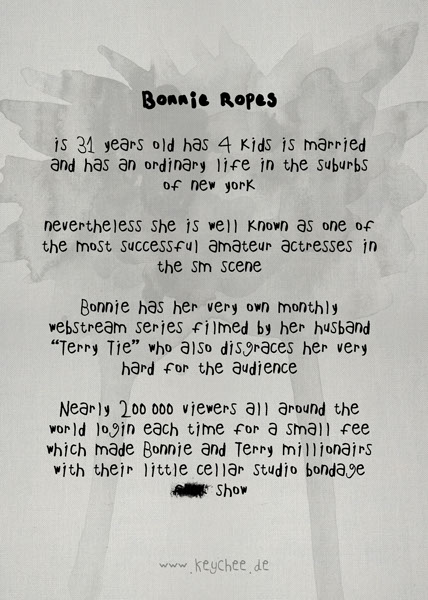 Bonnie Ropes
is 31 years old has 4 kids is married
and has an ordinary life in the suburbs
of new york
nevertheless she is well known as one of
the most successful amateur actresses in
the sm scene
Bonnie has her very own monthly
webstream series filmed by her husband
"Terry Tie" who also disgraces her very
hard for the audience
Nearly 200 000 viewers all around the
world login each time for a small fee
which made Bonnie and Terry millionairs
with their little cellar studio bondage
show
www.keychee.de